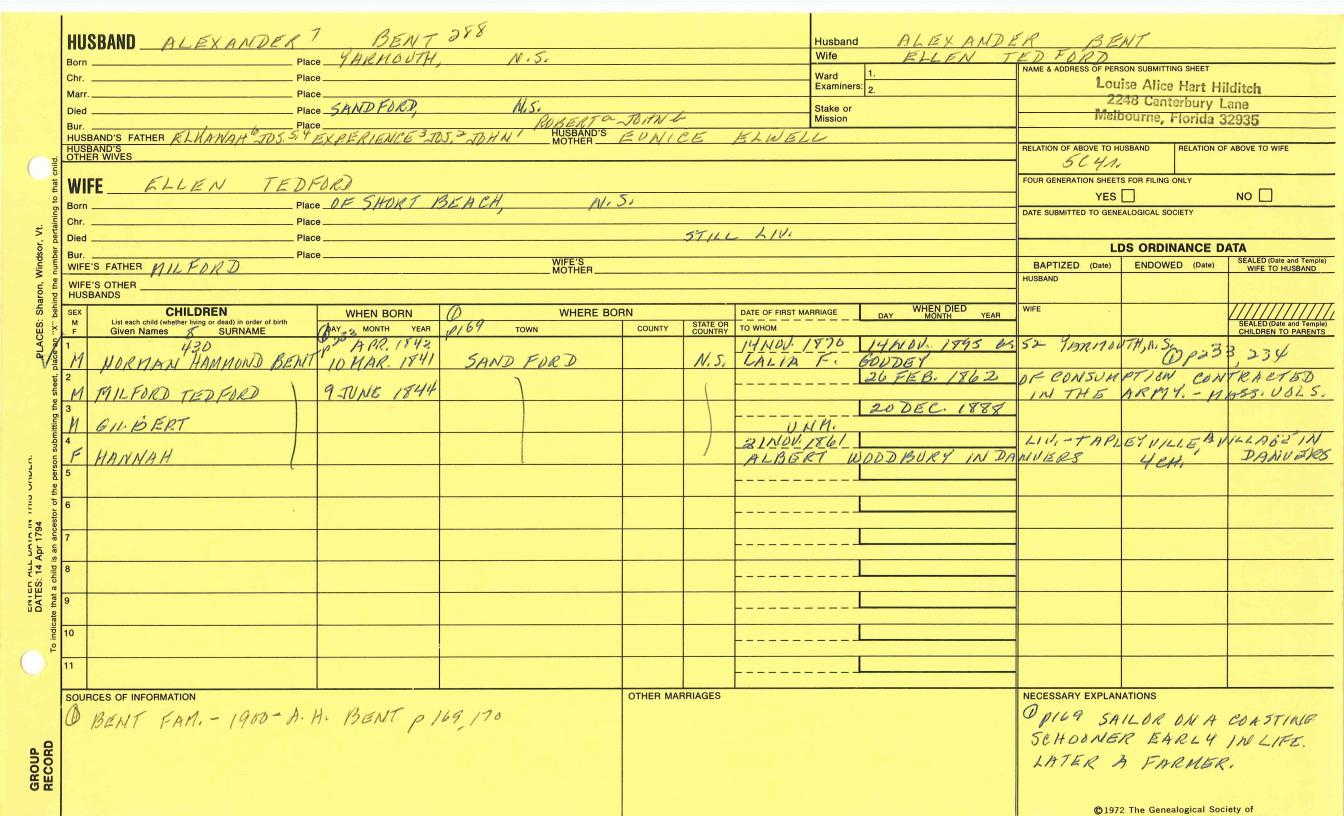 HUSBAND ALEXANDER 7 BENT 288
Born Place YARMOUTH, N.S.
Chr. Place
Marr. Place
Died Place SANDFORD, N.S.
Bur. Place
ROBERT a JOHN
HUSBAND'S FATHER ELKANAH 6 JOS. 5, 4 EXPERIENCE 3 JOS. 2 JOHN 1 HUSBAND'S MOTHER EUNICE ELWELL
HUSBAND'S OTHER WIVES
WIFE ELLEN TEDFORD
Born Place OF SHORT BEACH, N.S.
Chr. Place
Died Place STILL LIV.
Bur. Place
WIFE'S FATHER MILFORD WIFE'S MOTHER
WIFE'S OTHER HUSBANDS
Husband ALEXANDER BENT
Wife ELLEN TEDFORD
Ward Examiners: 1. 2.
Stake or Mission
NAME & ADDRESS OF PERSON SUBMITTING SHEET
Louise Alice Hart Hilditch
2248 Canterbury Lane
Melbourne, Florida 32935
RELATION OF ABOVE TO HUSBAND RELATION OF ABOVE TO WIFE
5C4r.
FOUR GENERATION SHEETS FOR FILING ONLY
YES NO
DATE SUBMITTED TO GENEALOGICAL SOCIETY
LDS ORDINANCE DATA
BAPTIZED (Date) ENDOWED (Date) SEALED (Date and Temple) WIFE TO HUSBAND
HUSBAND
WIFE
SEALED (Date and Temple) CHILDREN TO PARENTS
SEX M F CHILDREN WHEN BORN ① WHERE BORN DATE OF FIRST MARRIAGE WHEN DIED
List each child (whether living or dead) in order of birth
Given Names 8 SURNAME DAY MONTH YEAR p169 TOWN COUNTY STATE OR COUNTRY TO WHOM DAY MONTH YEAR
1 430 ① p233 APR. 1842 14 NOV. 1870 14 NOV. 1895 as 52 YARMOUTH, N.S.
M NORMAN HAMMOND BENT 10 MAR. 1841 SANDFORD N.S. LALIA F. GOUDEY ① p233, 234
2 26 FEB. 1862 OF CONSUMPTION CONTRACTED
M MILFORD TEDFORD 9 JUNE 1844 IN THE ARMY. - MASS. VOLS.
3 20 DEC. 1888
M GILBERT UNM.
4 21 NOV. 1861 LIV. - TAPLEYVILLE, A VILLAGE IN
F HANNAH ALBERT WOODBURY IN DANVERS 4 CH. DANVERS
5
6
7
8
9
10
11
SOURCES OF INFORMATION
① BENT FAM. - 1900 - A. H. BENT p 169, 170
OTHER MARRIAGES
NECESSARY EXPLANATIONS
① p169 SAILOR ON A COASTING
SCHOONER EARLY IN LIFE.
LATER A FARMER.
©1972 The Genealogical Society of
PLACES: Sharon, Windsor, Vt.
ENTER ALL DATA IN THIS ORDER:
DATES: 14 Apr 1794
To indicate that a child is an ancestor of the person submitting the sheet, place an "X" behind the number pertaining to that child.
GROUP RECORD